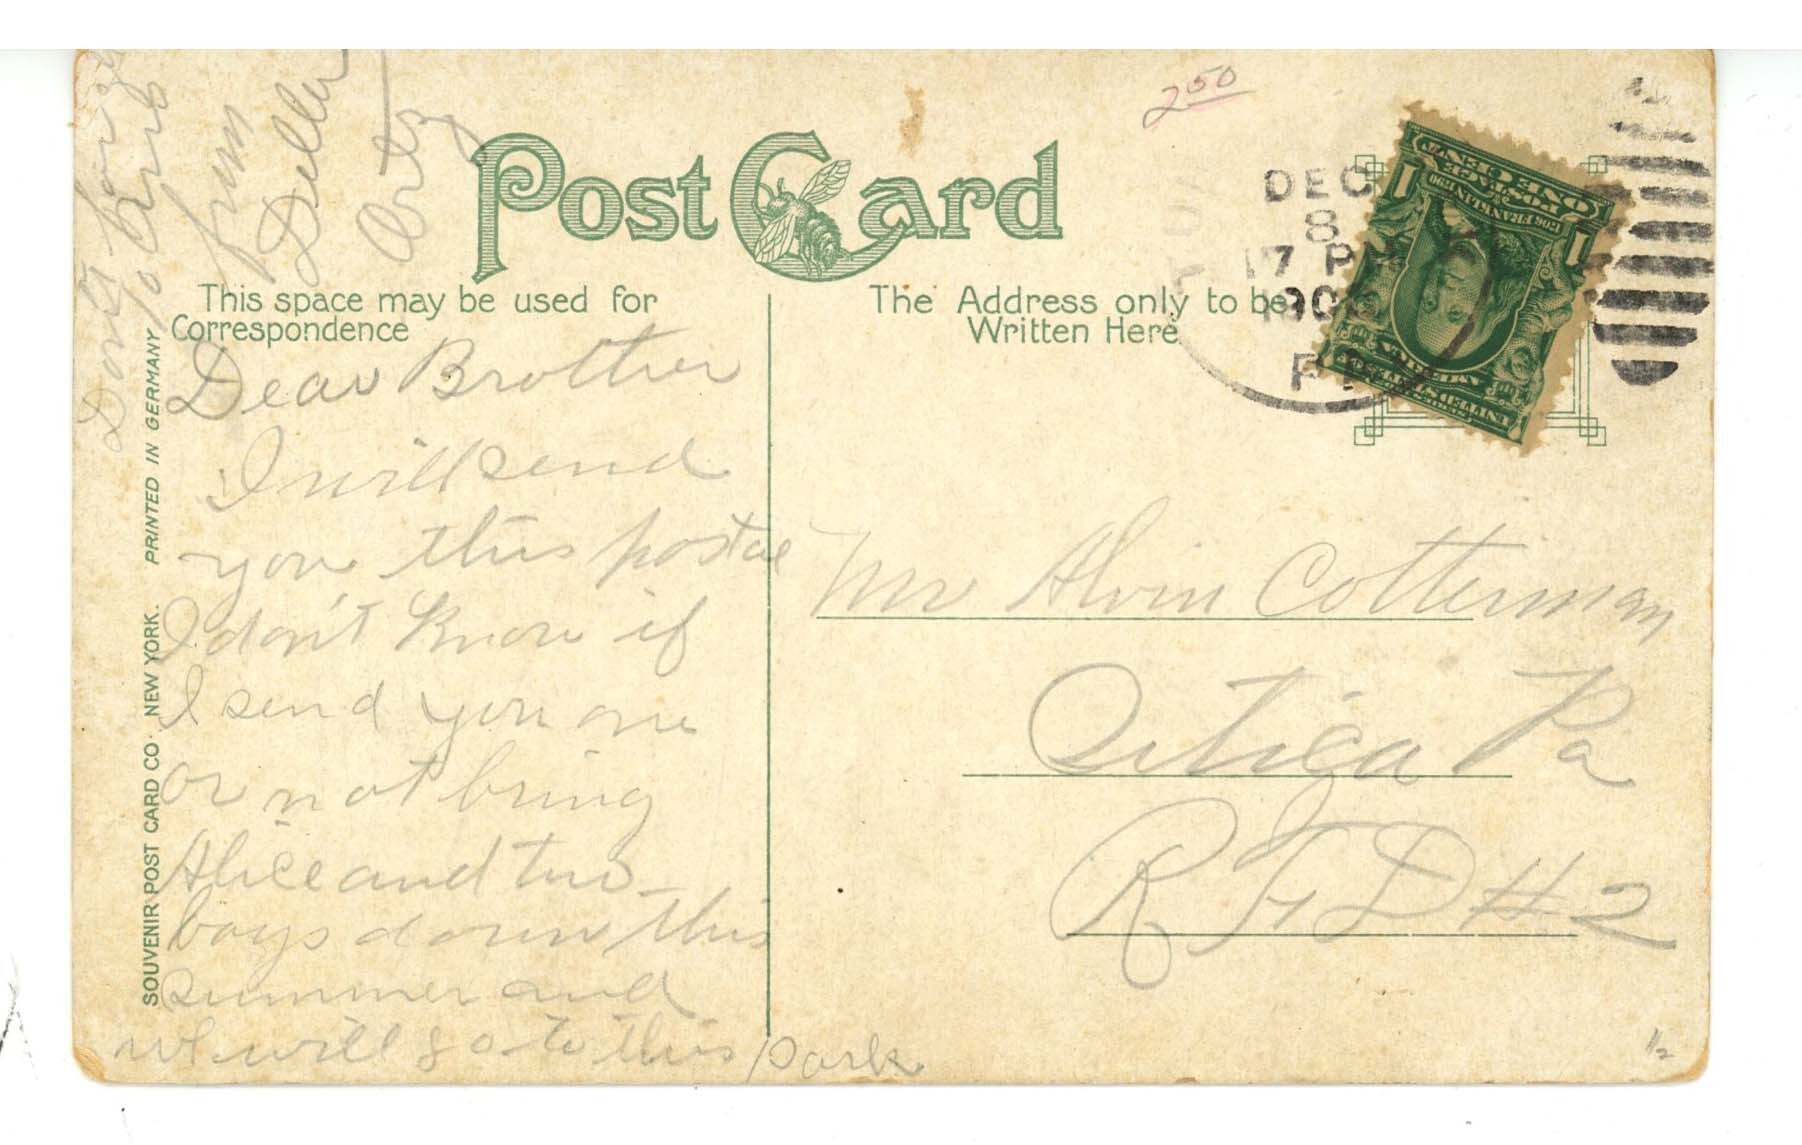 2 50
Post Card
This space may be used for
Correspondence
The Address only to be
Written Here
DEC
8
7 P
190
PA
ONE CENT
POSTAGE
FRANKLIN
1 1
UNITED STATES
AMERICA
PRINTED IN GERMANY
SOUVENIR POST CARD CO. NEW YORK.
Dear Brother
I will send
you this postal
I don't know if
I send you one
or not bring
Alice and two
boys down this
summer and
we will go to this park
Don't forget
to
from
Mr Alvin Cotterman
Utica Pa
R F D # 2
1/2